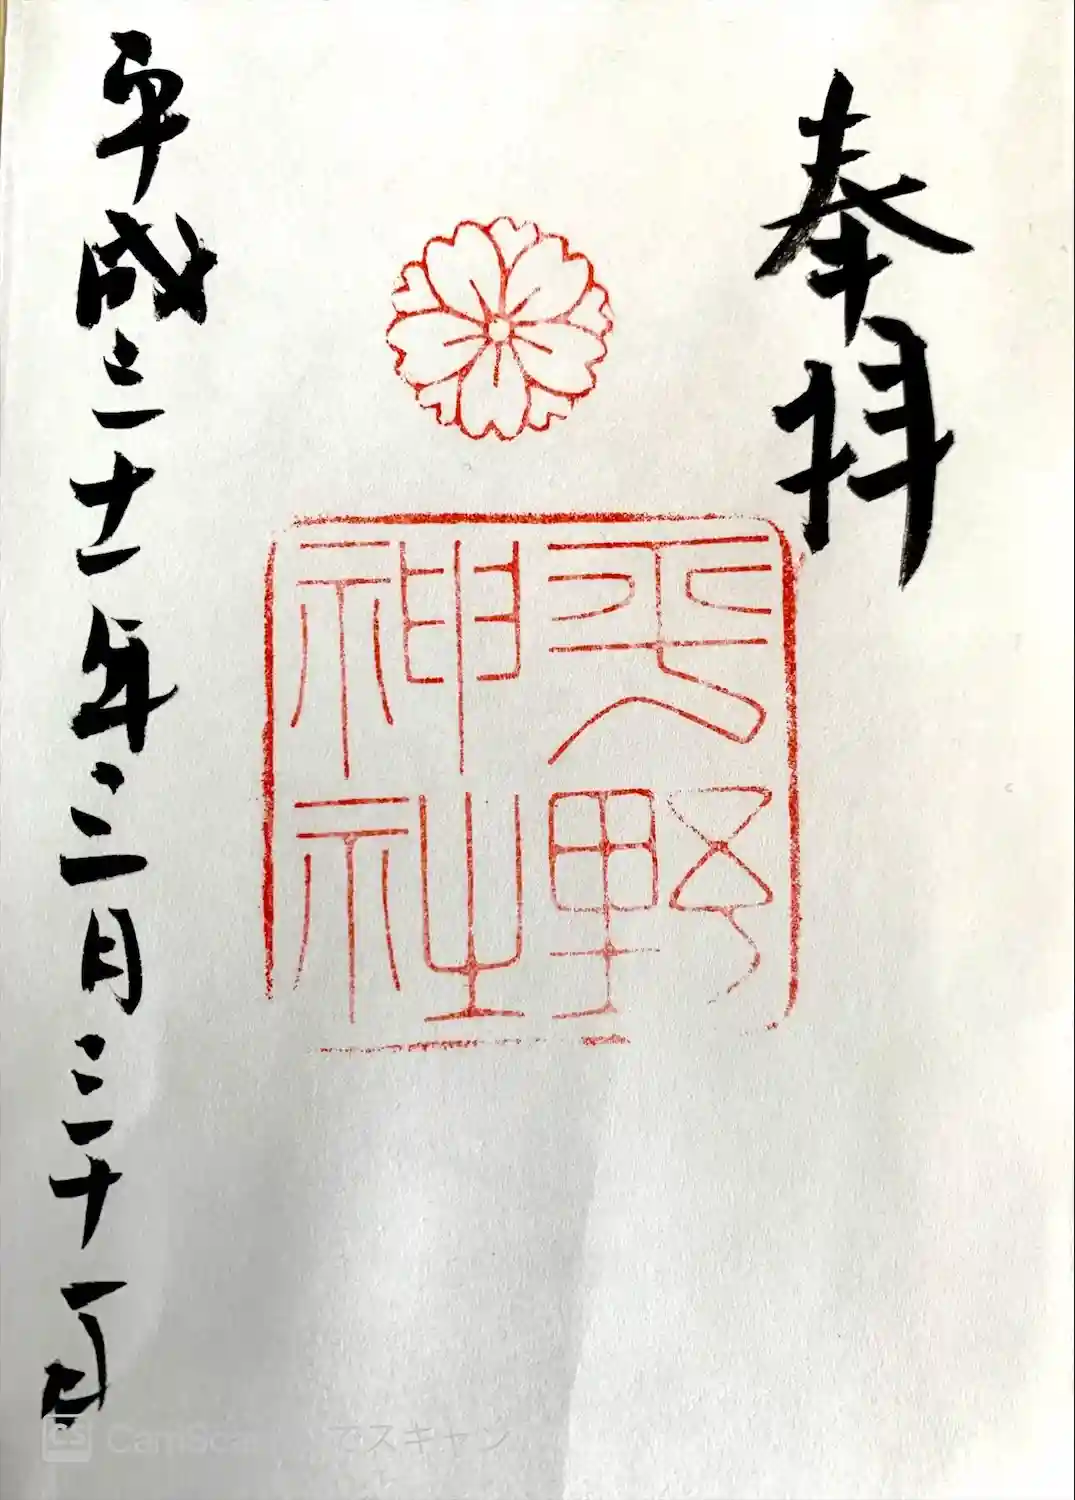 奉拝
平野
神社
平成三十一年三月三十一日
CS CamScannerでスキャン